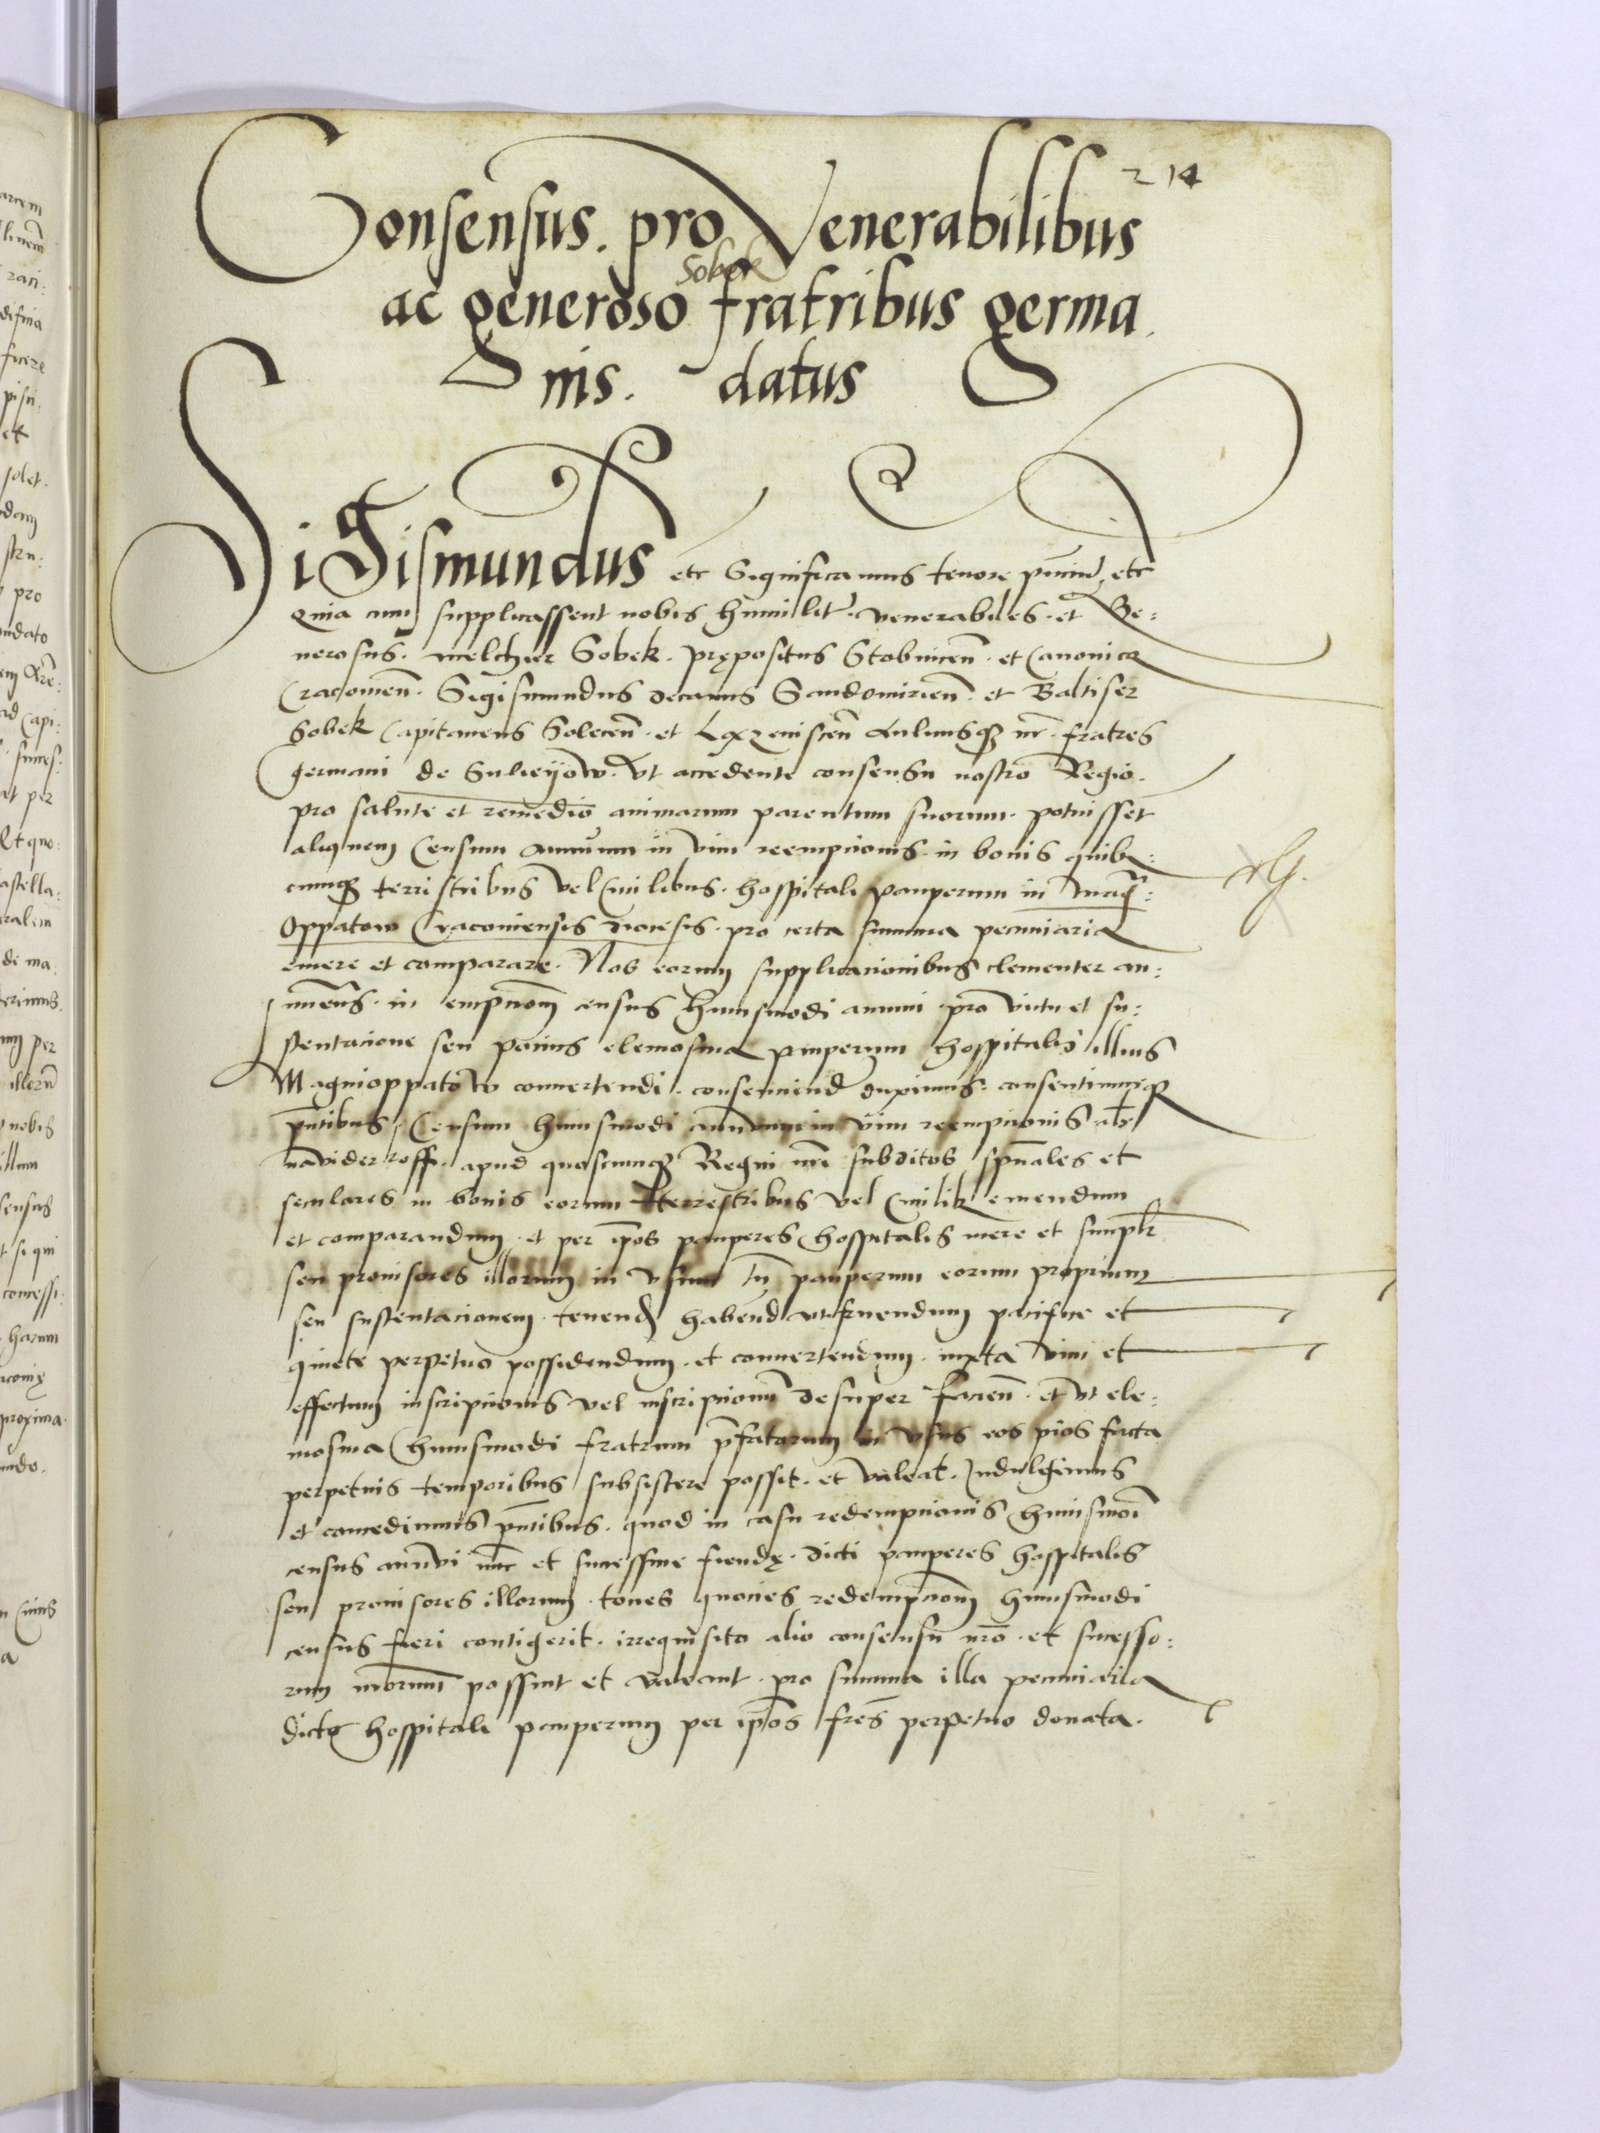 214
Consensus. pro Venerabilibus
Sobek
ac generoso fratribus germa
nis. datus
Sigismundus etc Significamus tenore pñciũ etc
quia cum supplicassent nobis humilit̃. venerabiles. et Ge:
nerosus. Melcher Sobek. prępositus Stobnicen̄. et Canonicꝰ
Cracovien̄. Segismundus decanus Sandomirien̄. et Baltiser
Sobek Capitaneus Solecen̄. et Aulicusqꝫ nr̄. fratres
germani de Sulieyow. Vt accedente consensu nostro Regio.
pro salute et remedio animarum parentum suorum. potuisset
aliquem Censum annuum in vim reempcionis in bonis quibꝰ:
cumqꝫ terrestribus vel Civilibus. hospitali pauperum in Mag̃:
Oppatow Cracoviensis diocesis. pro certa summa pecuniaria
emere et comparare. Nos eorum supplicacionibus clementer an:
nuen̄s. in empcioñ census huiusmodi annui pro victu et su:
stentacione seu pocius elemosina pauperum hospitalis illius
Magnioppatow convertendi. consenciend duximus. consentimusqꝫ
pñtibus. Censum huiusmodi annuum in vim reempcionis
apud quoscumqꝫ Regni nr̄i subditos spūales et
seculares in bonis eorum terrestribus vel Civilibꝰ emendum
et comparandum. et per ip̄os pauperes hospitalis mere et simplr̄
seu provisores illorum in vsum tm̄ pauperum eorum proprium
seu sustentacionem. tenend̄ habend̄ vtifruendum pacifice et
quiete perpetuo possidendum. et convertendum. iuxta vim et
effectum inscripcionis vel inscripcionū desuper facien̄. et vt ele:
mosina huiusmodi fratrum p̄fatorum in vsus eos pios facta
perpetuis temporibus subsistere possit. et valeat. Indulgemus
et concedimus pñtibus. quod in casu redempcionis huiusmōi
census annvi nūc et successive fiendę. dicti pauperes hospitalis
seu provisores illorum. tocies quocies redempcioñ huiusmodi
census fieri contigerit. irrequisito alio consensu nr̄o. et successo:
rum nr̄orum possint et valeant. pro summa illa pecuniaria
dicto hospitali pauperum per ip̄os fr̄es perpetuo donata.